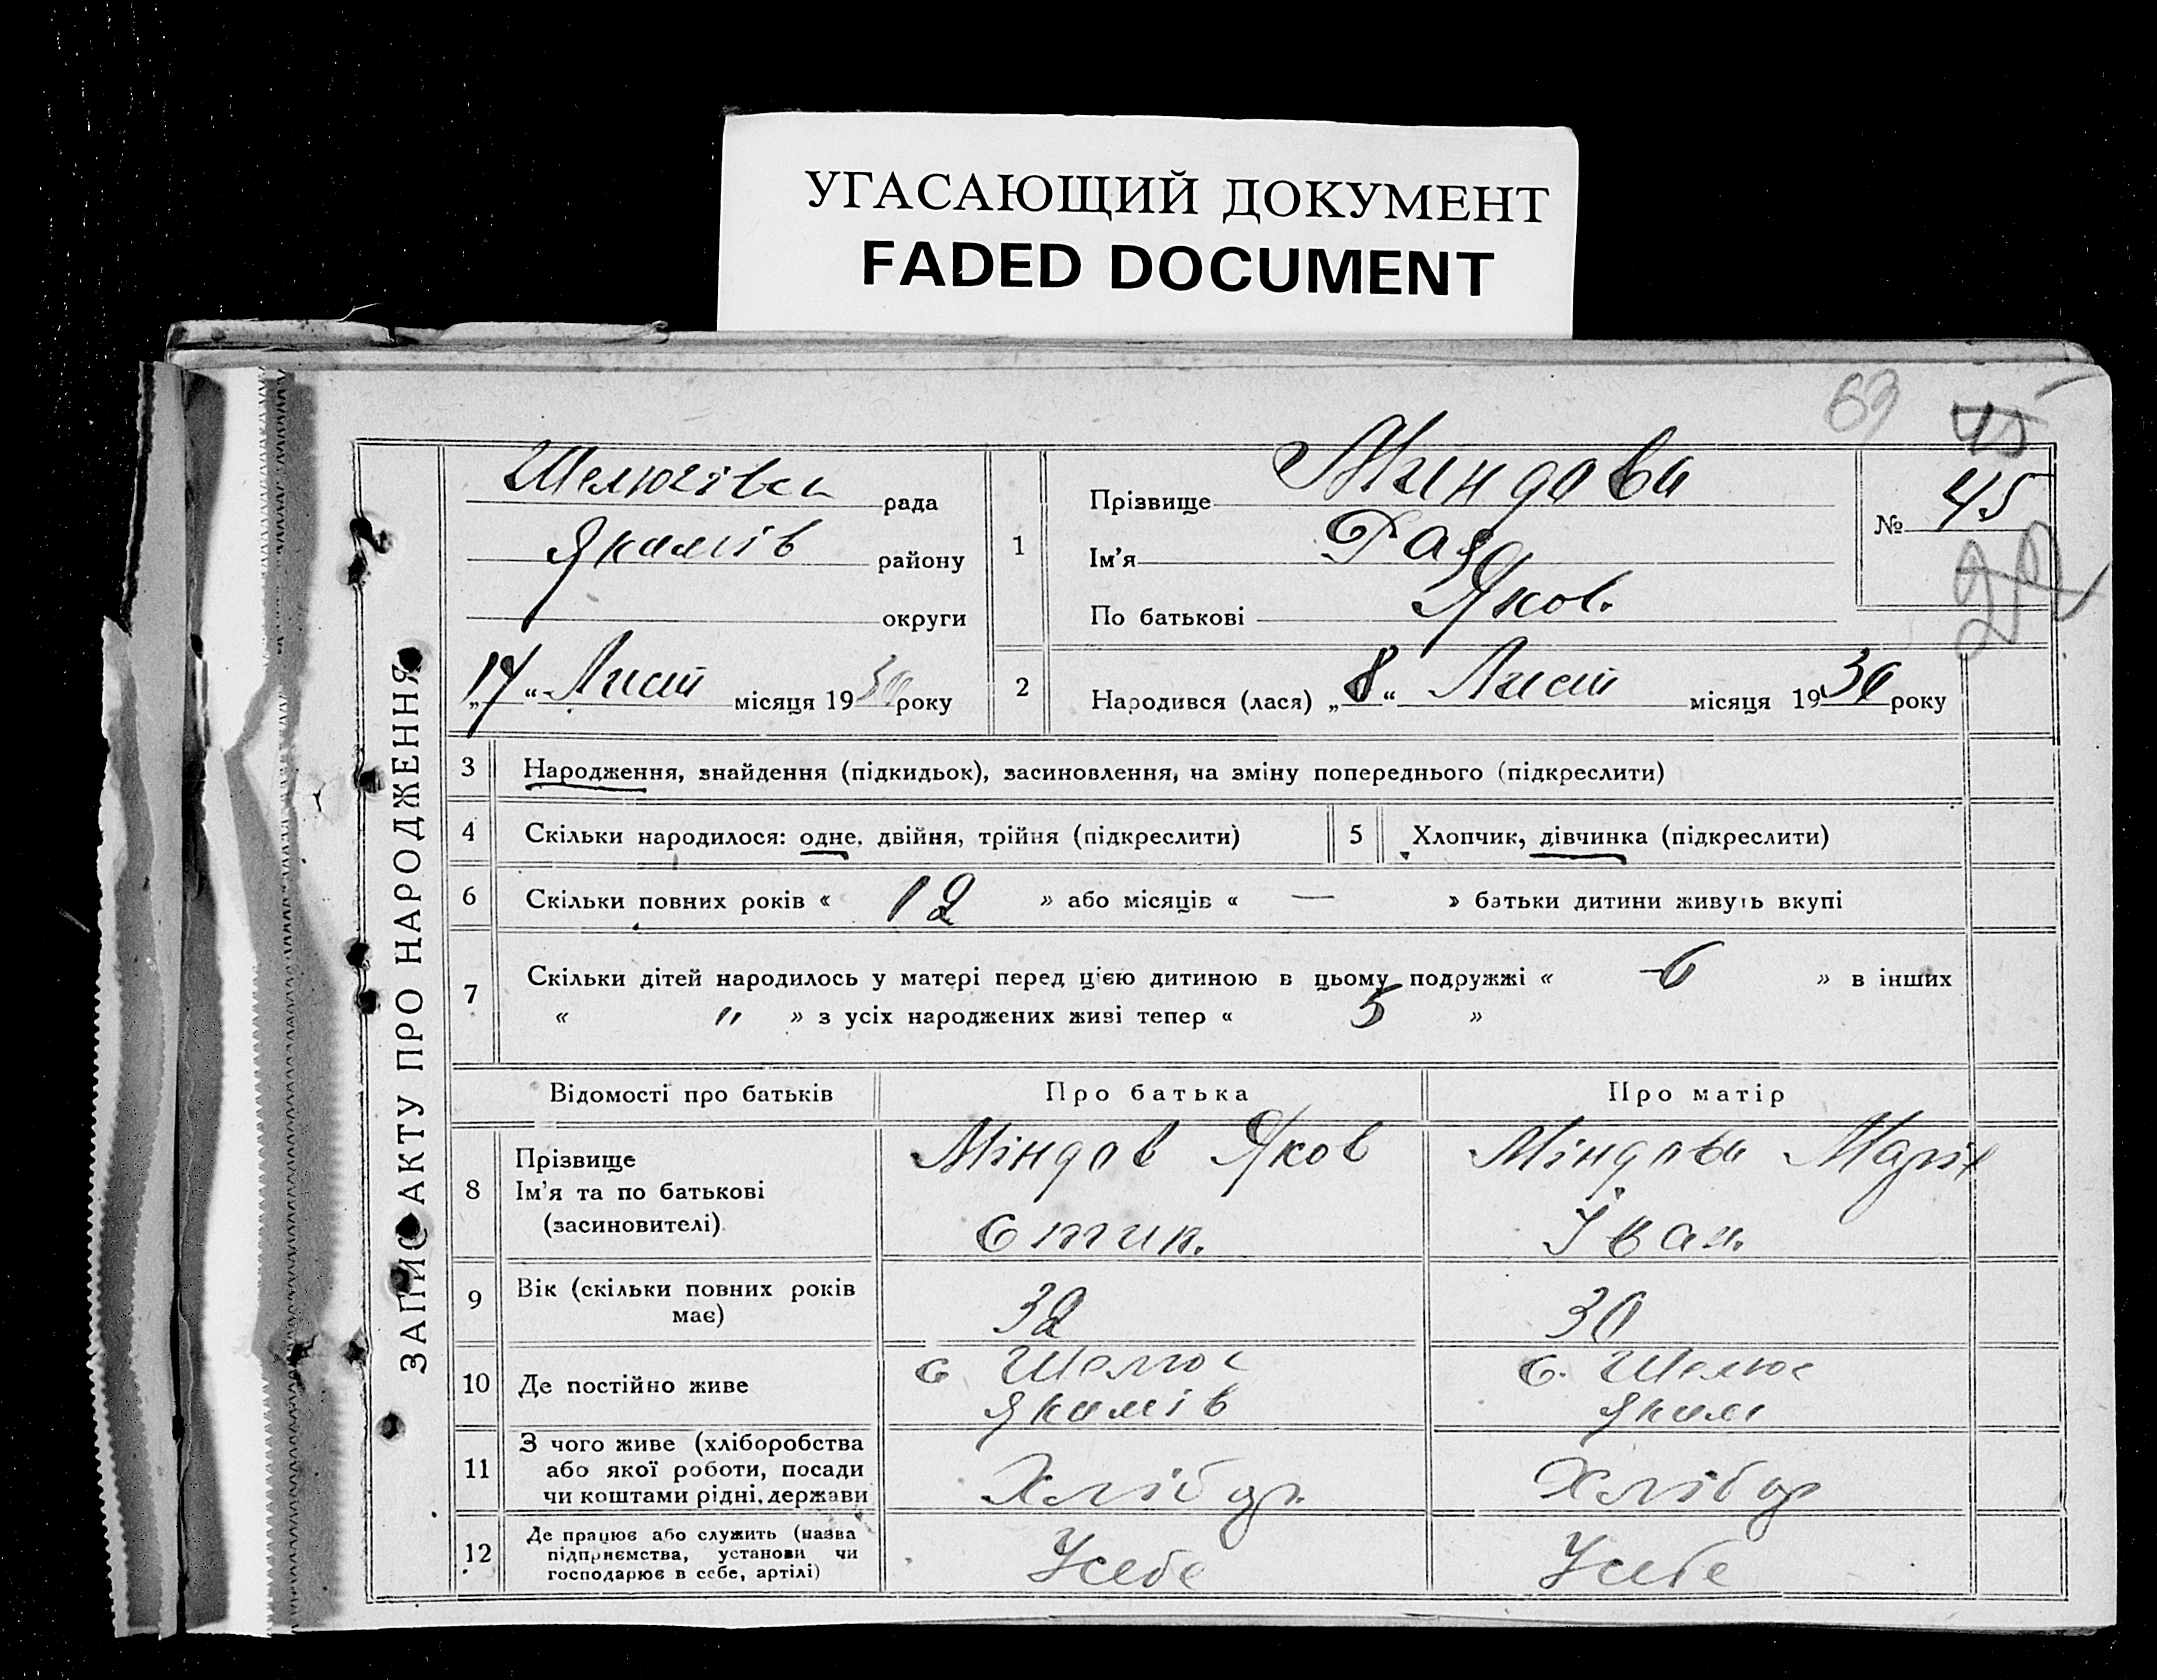 УГАСАЮЩИЙ ДОКУМЕНТ
FADED DOCUMENT
69 45
ЗАПИС АКТУ ПРО НАРОДЖЕННЯ
Шелюгівська рада
Якимів району
округи
„17“ Лист місяця 1930 року
1
Прізвище Миндова
Ім'я Рая
По батькові Яков.
№ 45
2 Народився (лася) „8“ Лист місяця 1930 року
3 Народження, знайдення (підкидьок), засиновлення, на зміну попереднього (підкреслити)
4 Скільки народилося: одне, двійня, трійня (підкреслити)
5 Хлопчик, дівчинка (підкреслити)
6 Скільки повних років « 12 » або місяців « — » батьки дитини живуть вкупі
7 Скільки дітей народилось у матері перед цією дитиною в цьому подружжі « 6 » в інших
« " » з усіх народжених живі тепер « 5 »
Відомості про батьків Про батька Про матір
8 Прізвище
Ім'я та по батькові
(засиновителі)
Міндов Яков
Міндова Марія
Іван.
9 Вік (скільки повних років
має)
32
30
10 Де постійно живе
с Шелюг
Якимів
с. Шелюг
Яким
11 З чого живе (хліборобства
або якої роботи, посади
чи коштами рідні, держави
Хлібор.
Хлібор
12 Де працює або служить (назва
підприємства, установи чи
господарює в себе, артілі)
У себе
У себе